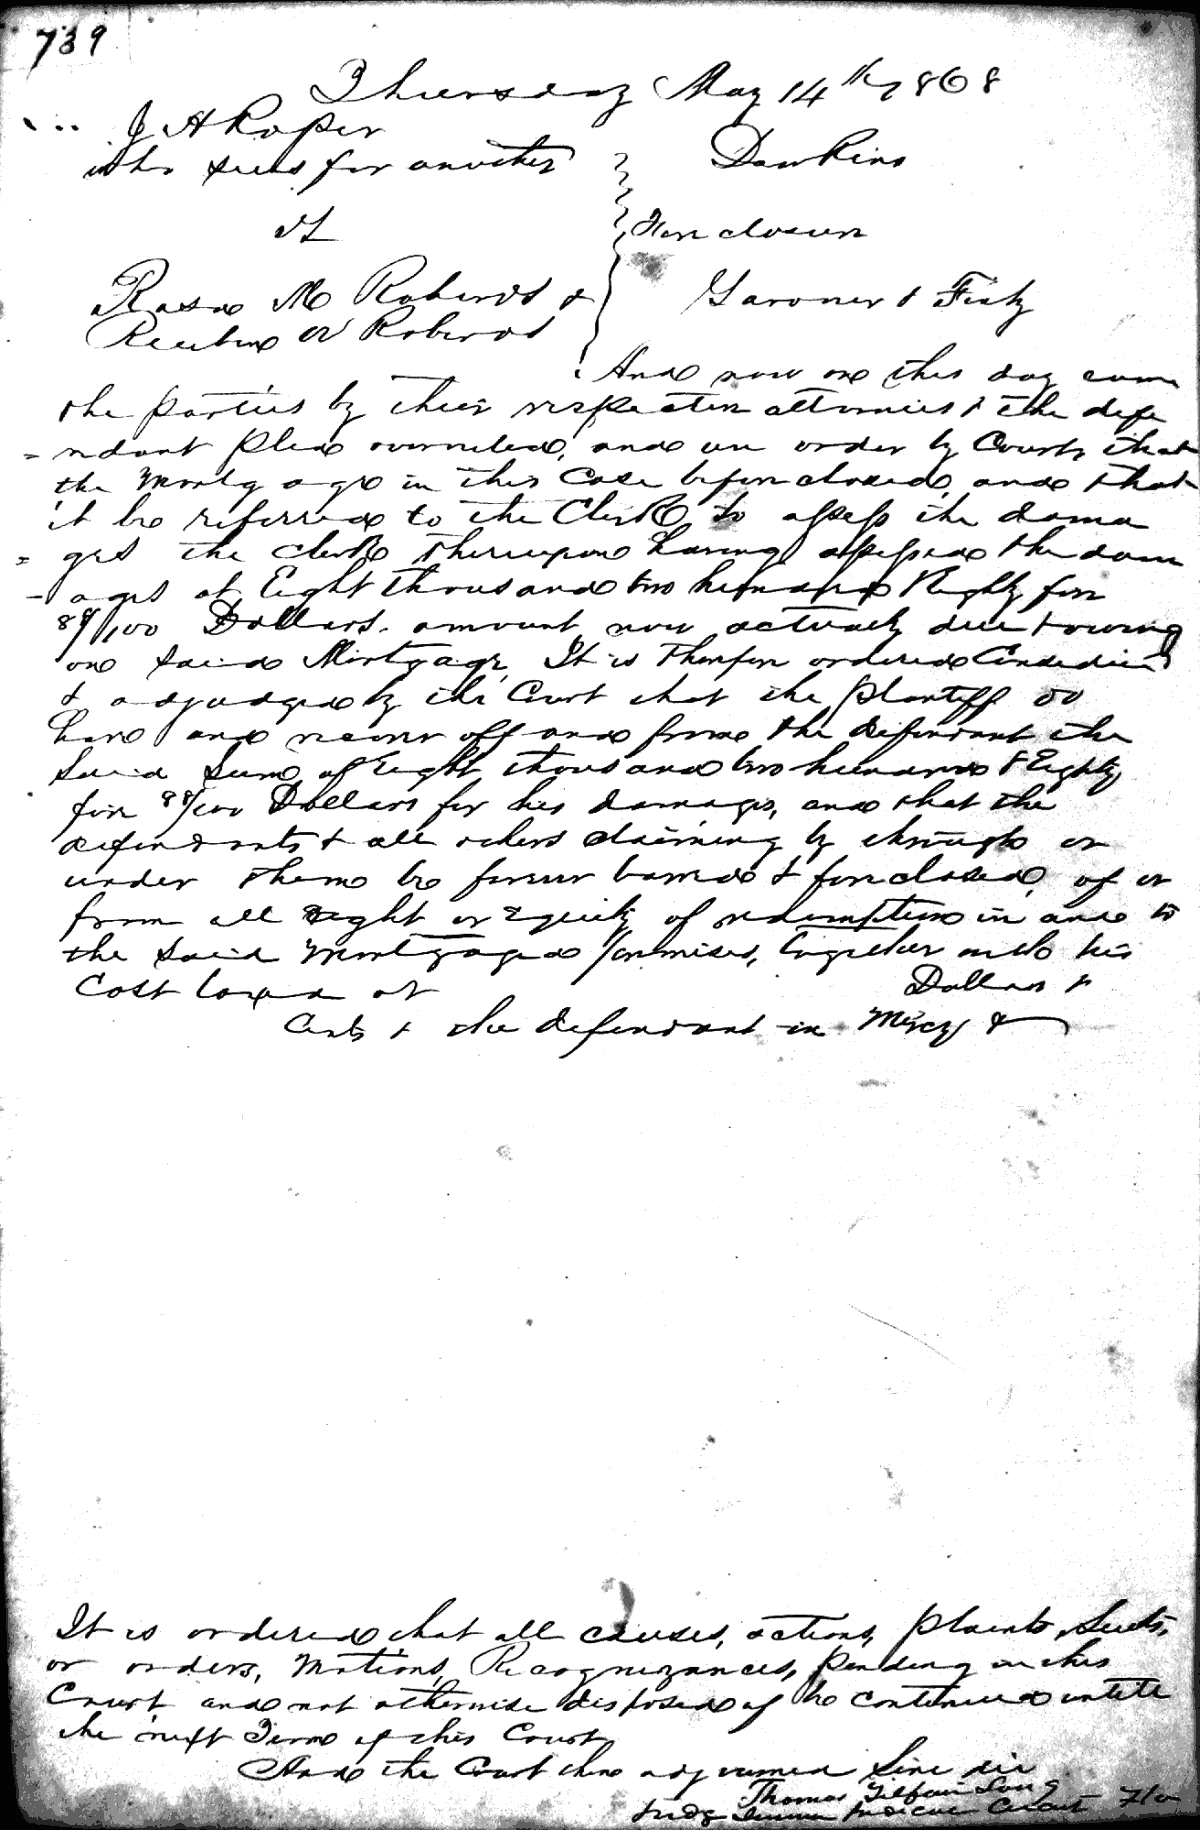 739
Thursday May 14th 1868
J A Roper
who sues for another
vs
Rosa M Roberts &
Reuben W Roberts
Dawkins
Foreclosure
Gardner & Finley
And now on this day came
the parties by their respective attornies & the defe
-ndant plea overruled, and an order by Court, that
the Mortgage in this Case be foreclosed, and that
it be referred to the Clerk to assess the dama
=ges the clerk thereupon having assessed the dam
-ages at Eight thousand two hundred & Eighty five
88/100 Dollars. amount now actually due & owing
on said Mortgage, It is therefore ordered Considered
& adjudged by the Court that the plantiff do
have and recover off and from the defendant the
said sum of Eight thousand two hundred & Eighty
five 88/100 Dollars for his damages, and that the
defendants & all others claiming by through or
under them be forever barred & foreclosed, of or
from all right or equity of redemption in and to
the said Mortgaged premises, together with his
Cost taxed at Dollars &
Cents & the defendant in Mercy &
It is ordered that all causes, actions, plaints, Suits,
or orders, Motions, Recognizances, pending in this
Court and not otherwise disposed of be continued untill
the next Term of this Court
And the Court then adjourned Sine die
Thomas Telfair Long
Judge Suwannee Judicial Circuit Fla